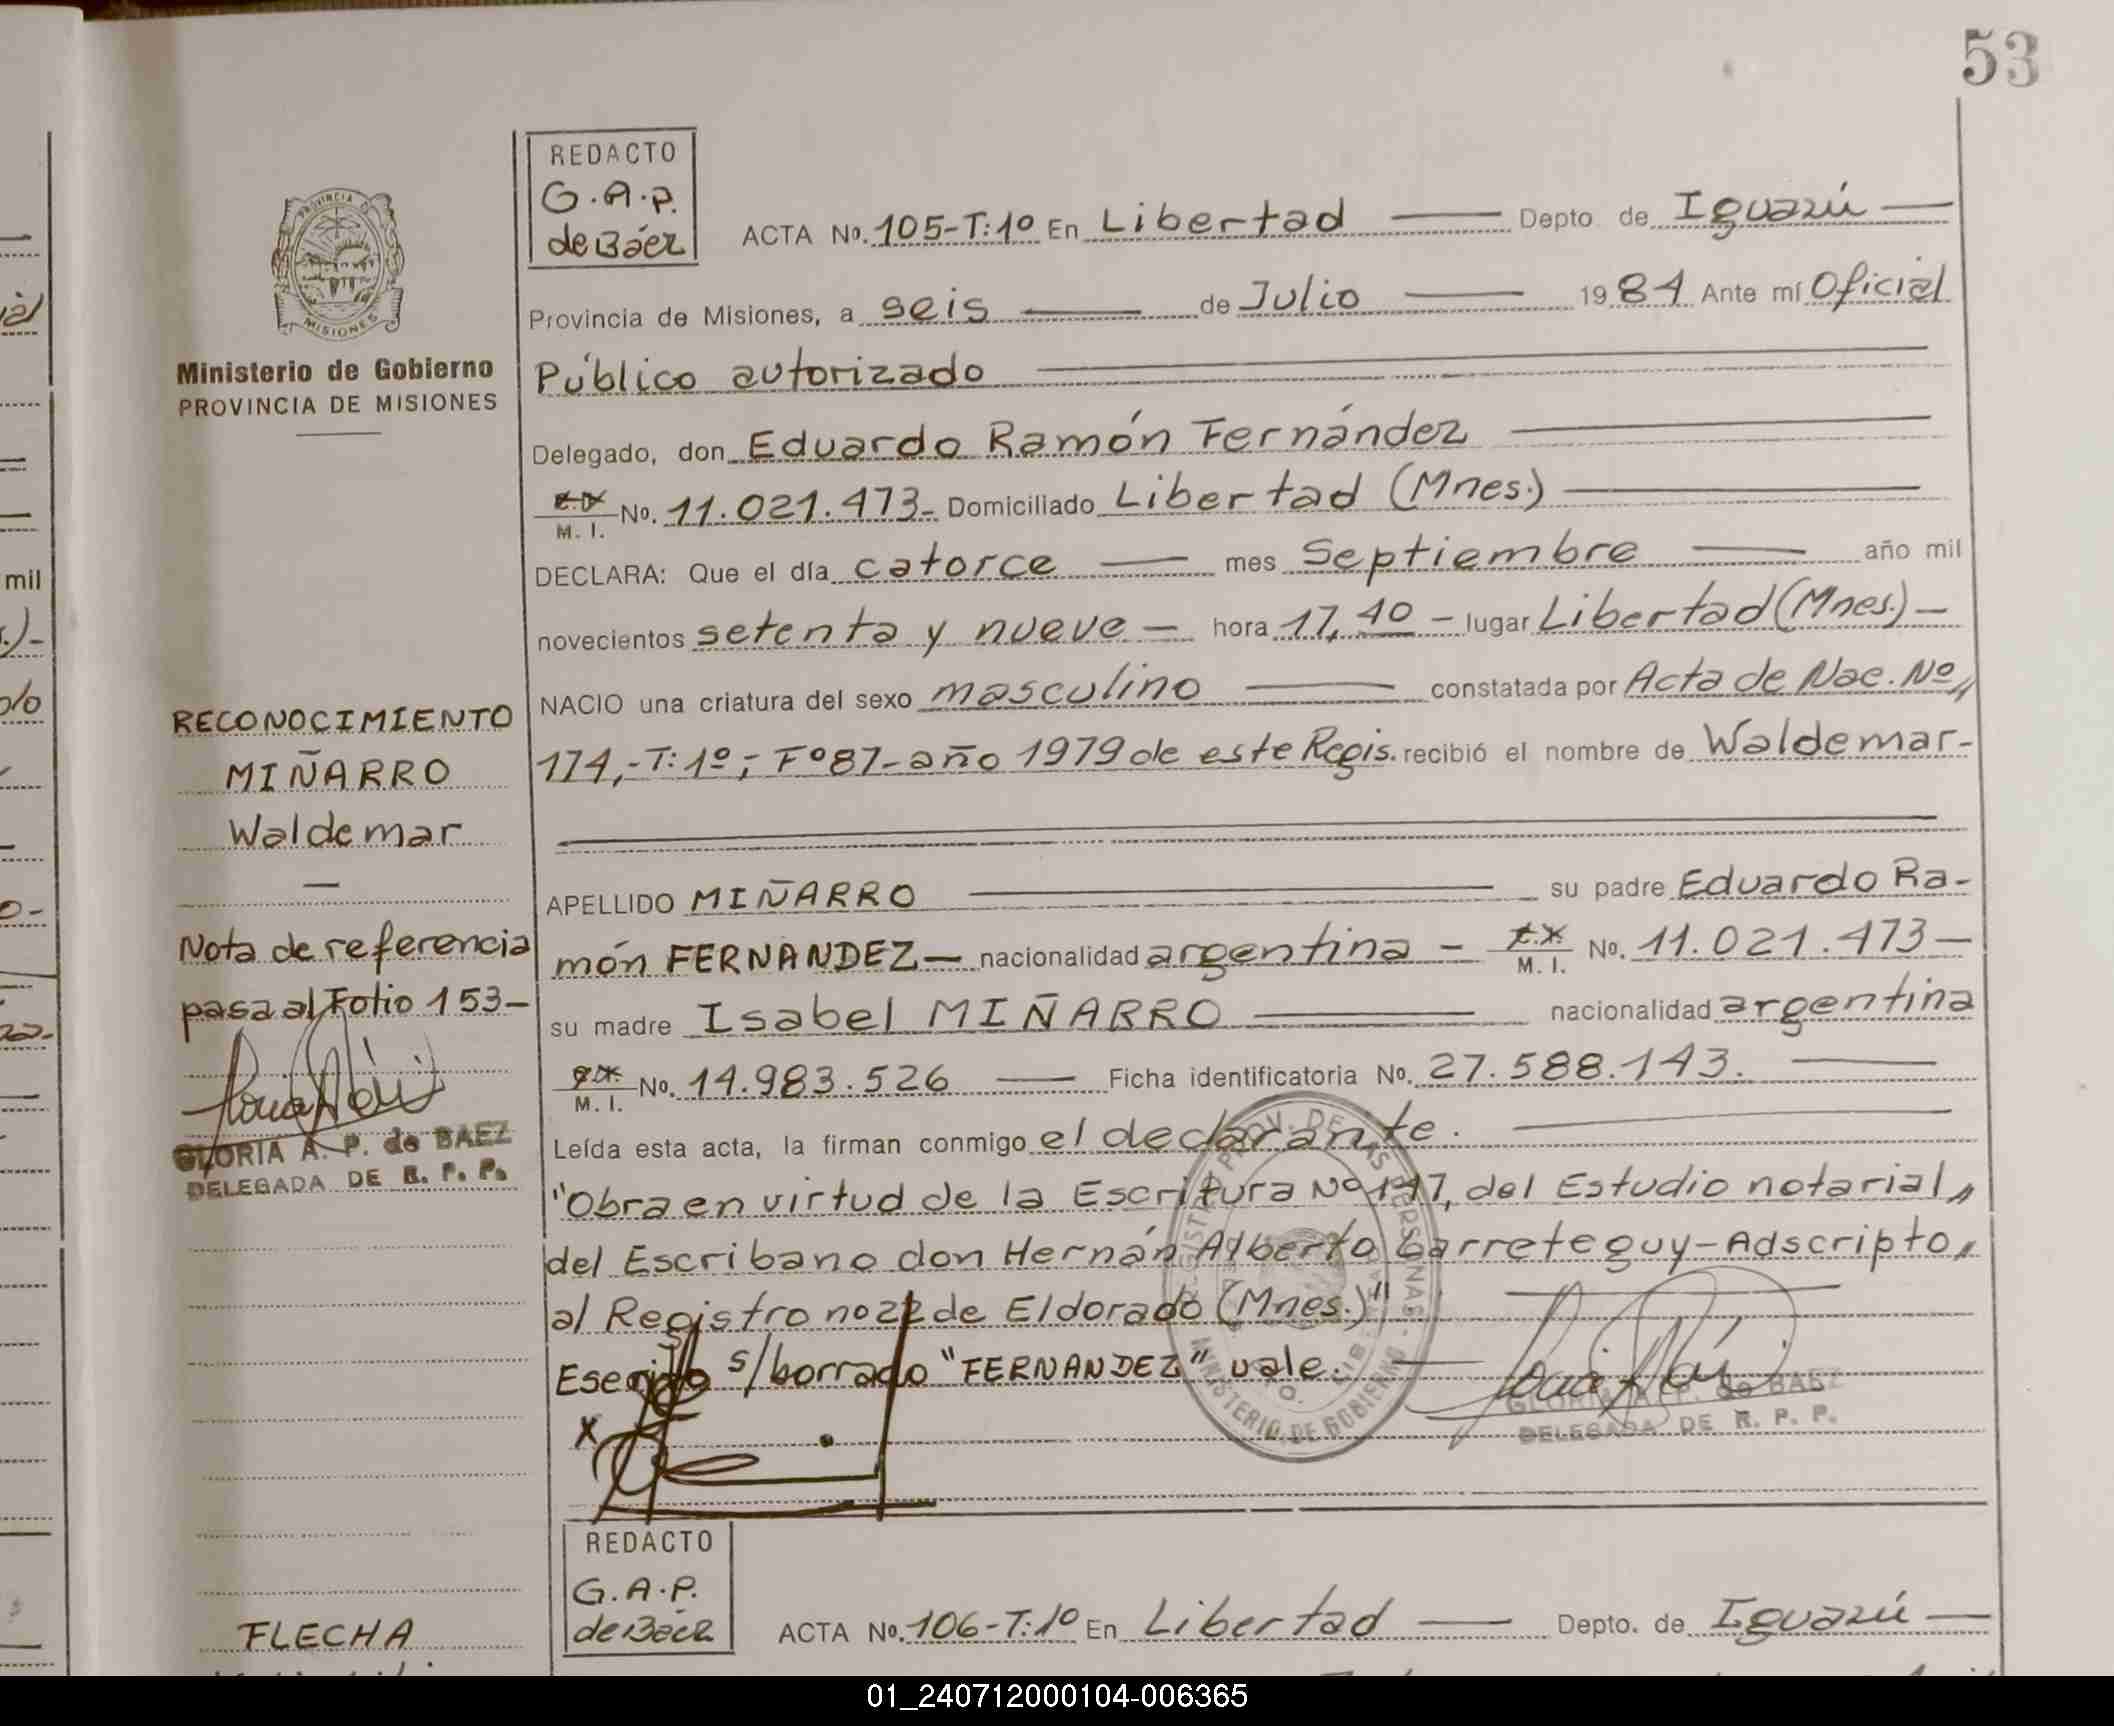 53
REDACTO
G.A.P.
de Báez
PROVINCIA DE
MISIONES
Ministerio de Gobierno
PROVINCIA DE MISIONES
ACTA No. 105-T:1º En Libertad Depto. de Iguazú
Provincia de Misiones, a seis de Julio 1984 Ante mí Oficial
Público autorizado
Delegado, don Eduardo Ramón Fernández
M. I. No. 11.021.473- Domiciliado Libertad (Mnes.)
DECLARA: Que el día catorce mes Septiembre año mil
novecientos setenta y nueve hora 17,40 lugar Libertad (Mnes.)
NACIO una criatura del sexo masculino constatada por Acta de Nac. Nº
174,-T:1º,- Fº87-año 1979 de este Regis. recibió el nombre de Waldemar-
APELLIDO MIÑARRO su padre Eduardo Ra-
món FERNANDEZ nacionalidad argentina M. I. No. 11.021.473
su madre Isabel MIÑARRO nacionalidad argentina
M. I. No. 14.983.526 Ficha identificatoria No. 27.588.143.
Leída esta acta, la firman conmigo el declarante.
"Obra en virtud de la Escritura Nº 147, del Estudio notarial
del Escribano don Hernán Alberto Garreteguy-Adscripto
al Registro no 22 de Eldorado (Mnes.)"
Escrito s/borrado "FERNANDEZ" vale.
X
GLORIA A. P. de BAEZ
DELEGADA DE R. P. P.
RECONOCIMIENTO
MIÑARRO
Waldemar
Nota de referencia
pasa al Folio 153-
GLORIA A. P. de BAEZ
DELEGADA DE R. P. P.
MINISTERIO DE GOBIERNO
REDACTO
G.A.P.
de Báez
ACTA No. 106-T:1º En Libertad Depto. de Iguazú
FLECHA
mil
01_240712000104-006365